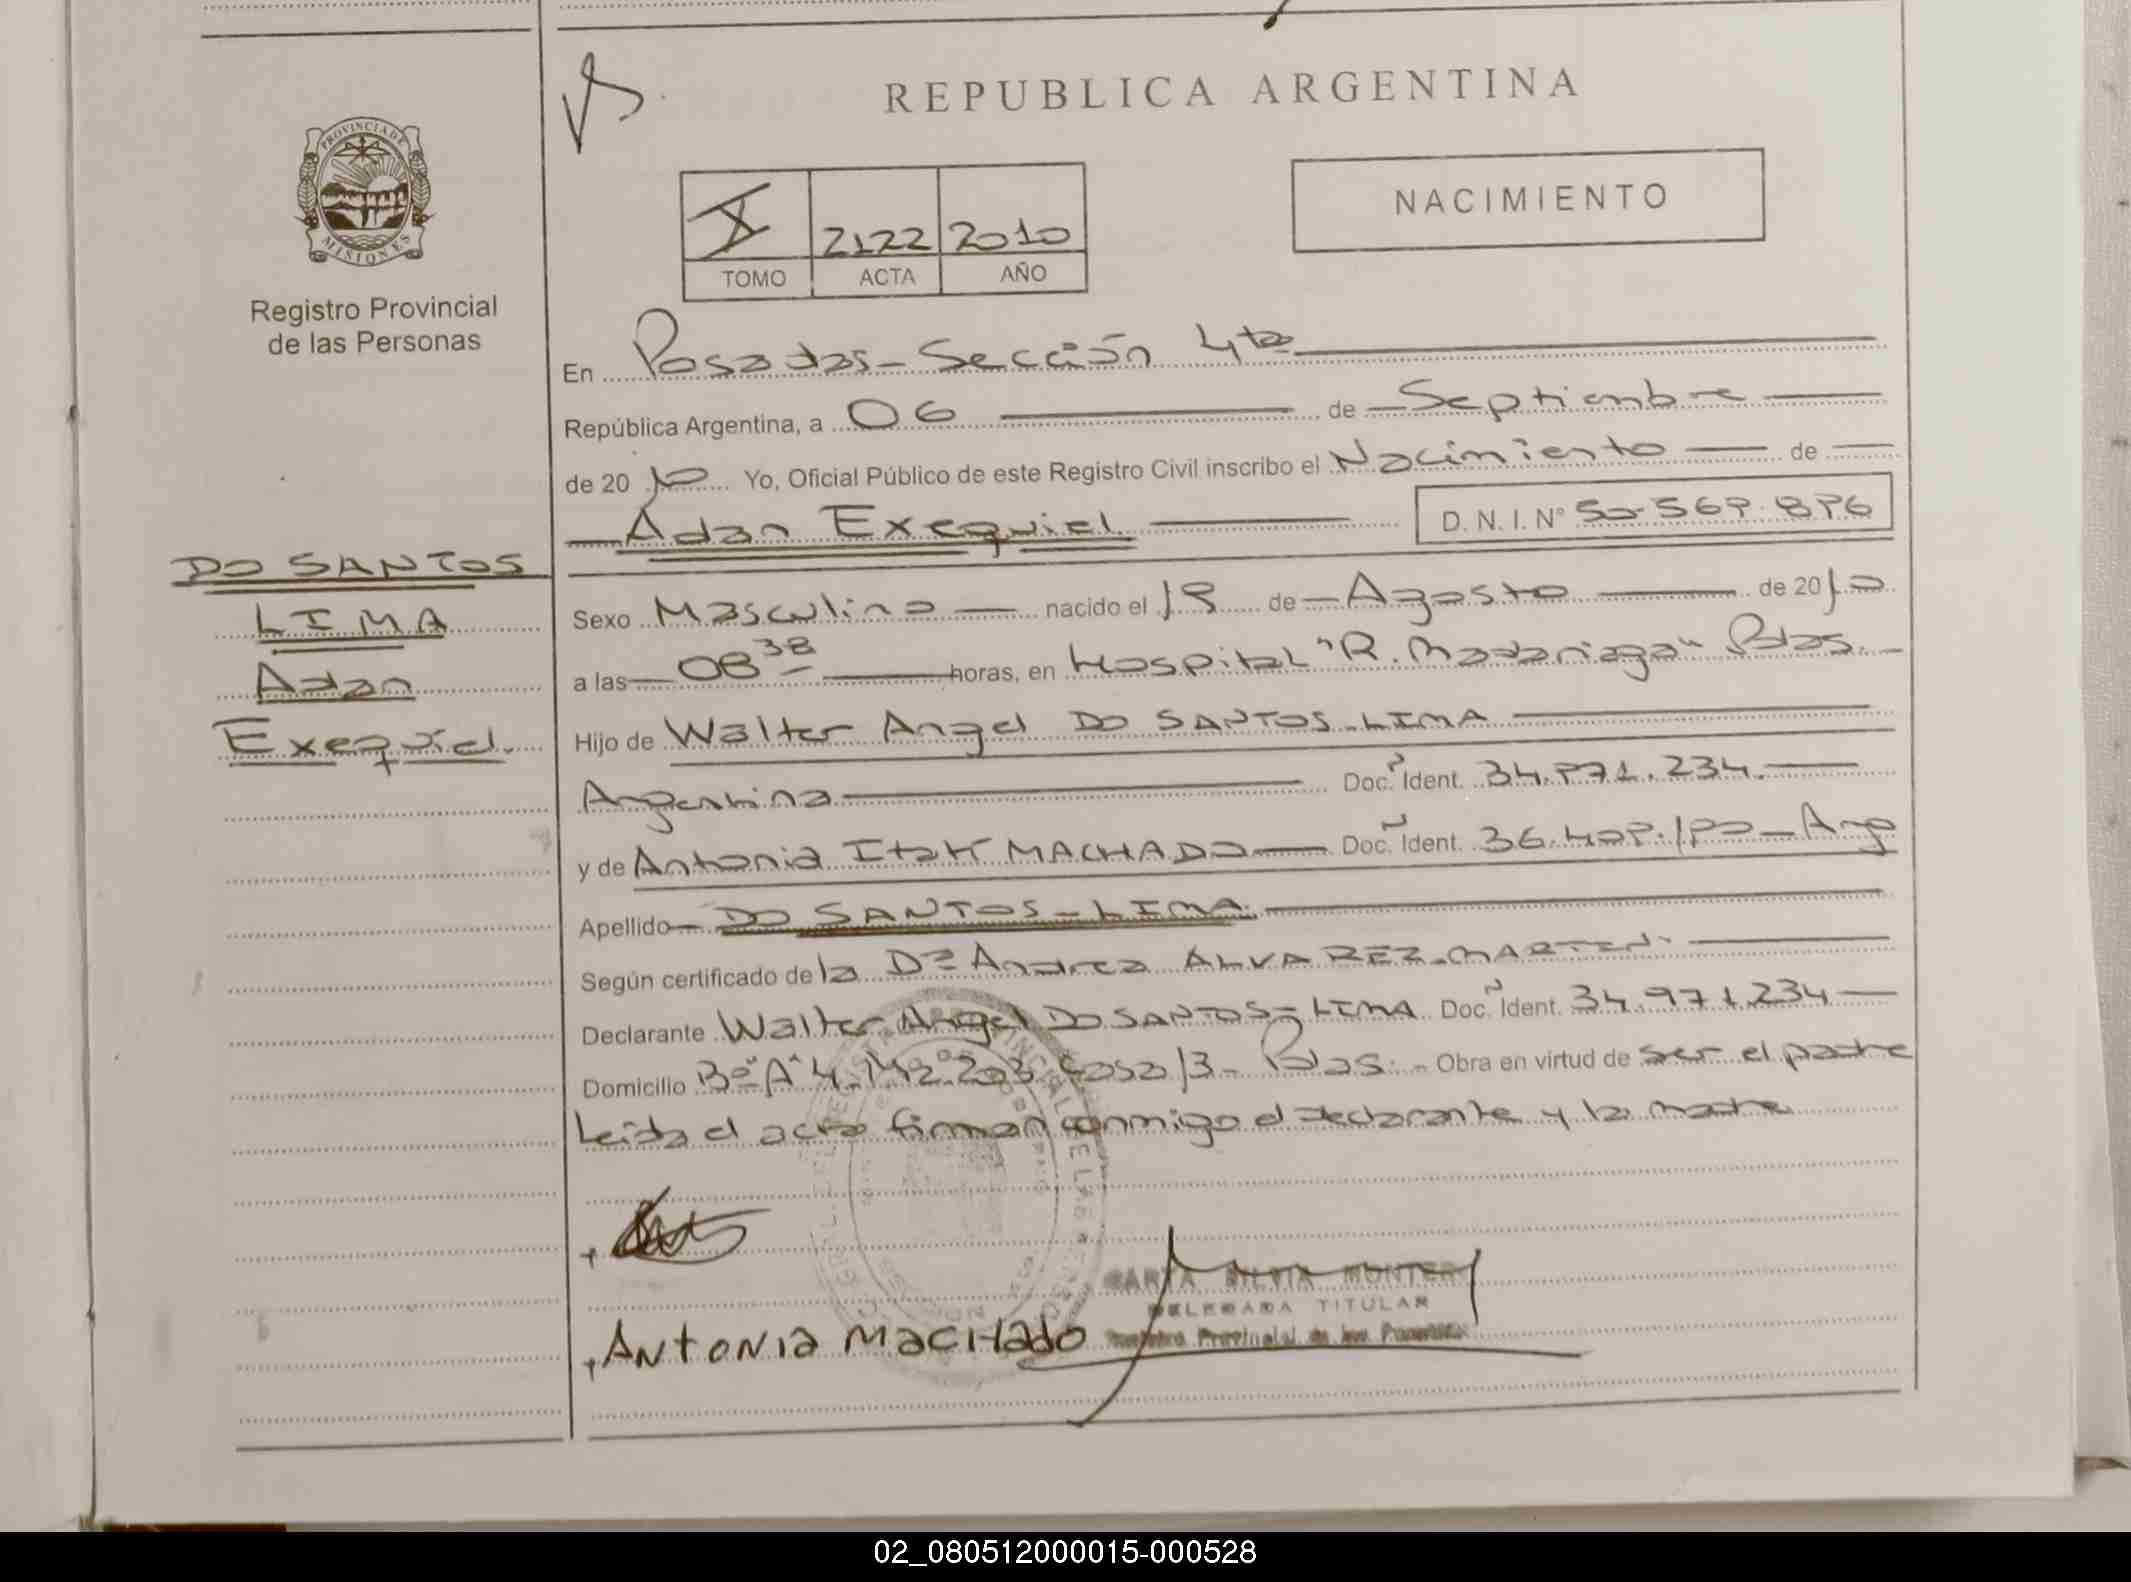 REPUBLICA ARGENTINA
PROVINCIA DE
MISIONES
Registro Provincial
de las Personas
X 2122 2010
TOMO ACTA AÑO
NACIMIENTO
En Posadas - Sección 4ta
República Argentina, a 06 de Septiembre
de 2010 Yo, Oficial Público de este Registro Civil inscribo el Nacimiento de
Adan Exequiel D. N. I. Nº 50.569.896
DO SANTOS
LIMA
Adan
Exequiel.
Sexo Masculino nacido el 19 de Agosto de 2010
a las 08 38 horas, en Hospital "R. Madariaga" Pdas.
Hijo de Walter Angel DO SANTOS-LIMA
Argentina Doc. Ident. 34.971.234.
y de Antonia Itatí MACHADO Doc. Ident. 36.409.190 - Arg
Apellido DO SANTOS-LIMA.
Según certificado de la Dra Andrea ALVAREZ-MARTINI
Declarante Walter Angel DO SANTOS-LIMA Doc. Ident. 34.971.234
Domicilio Bº A 4. Mz 203 Casa 13 - Pdas. - Obra en virtud de ser el padre
Leida el acta firman conmigo el declarante y la madre
SILVIA MONTER
DELEGADA TITULAR
Registro Provincial de las Personas
ANTONIA MACHADO
02_080512000015-000528